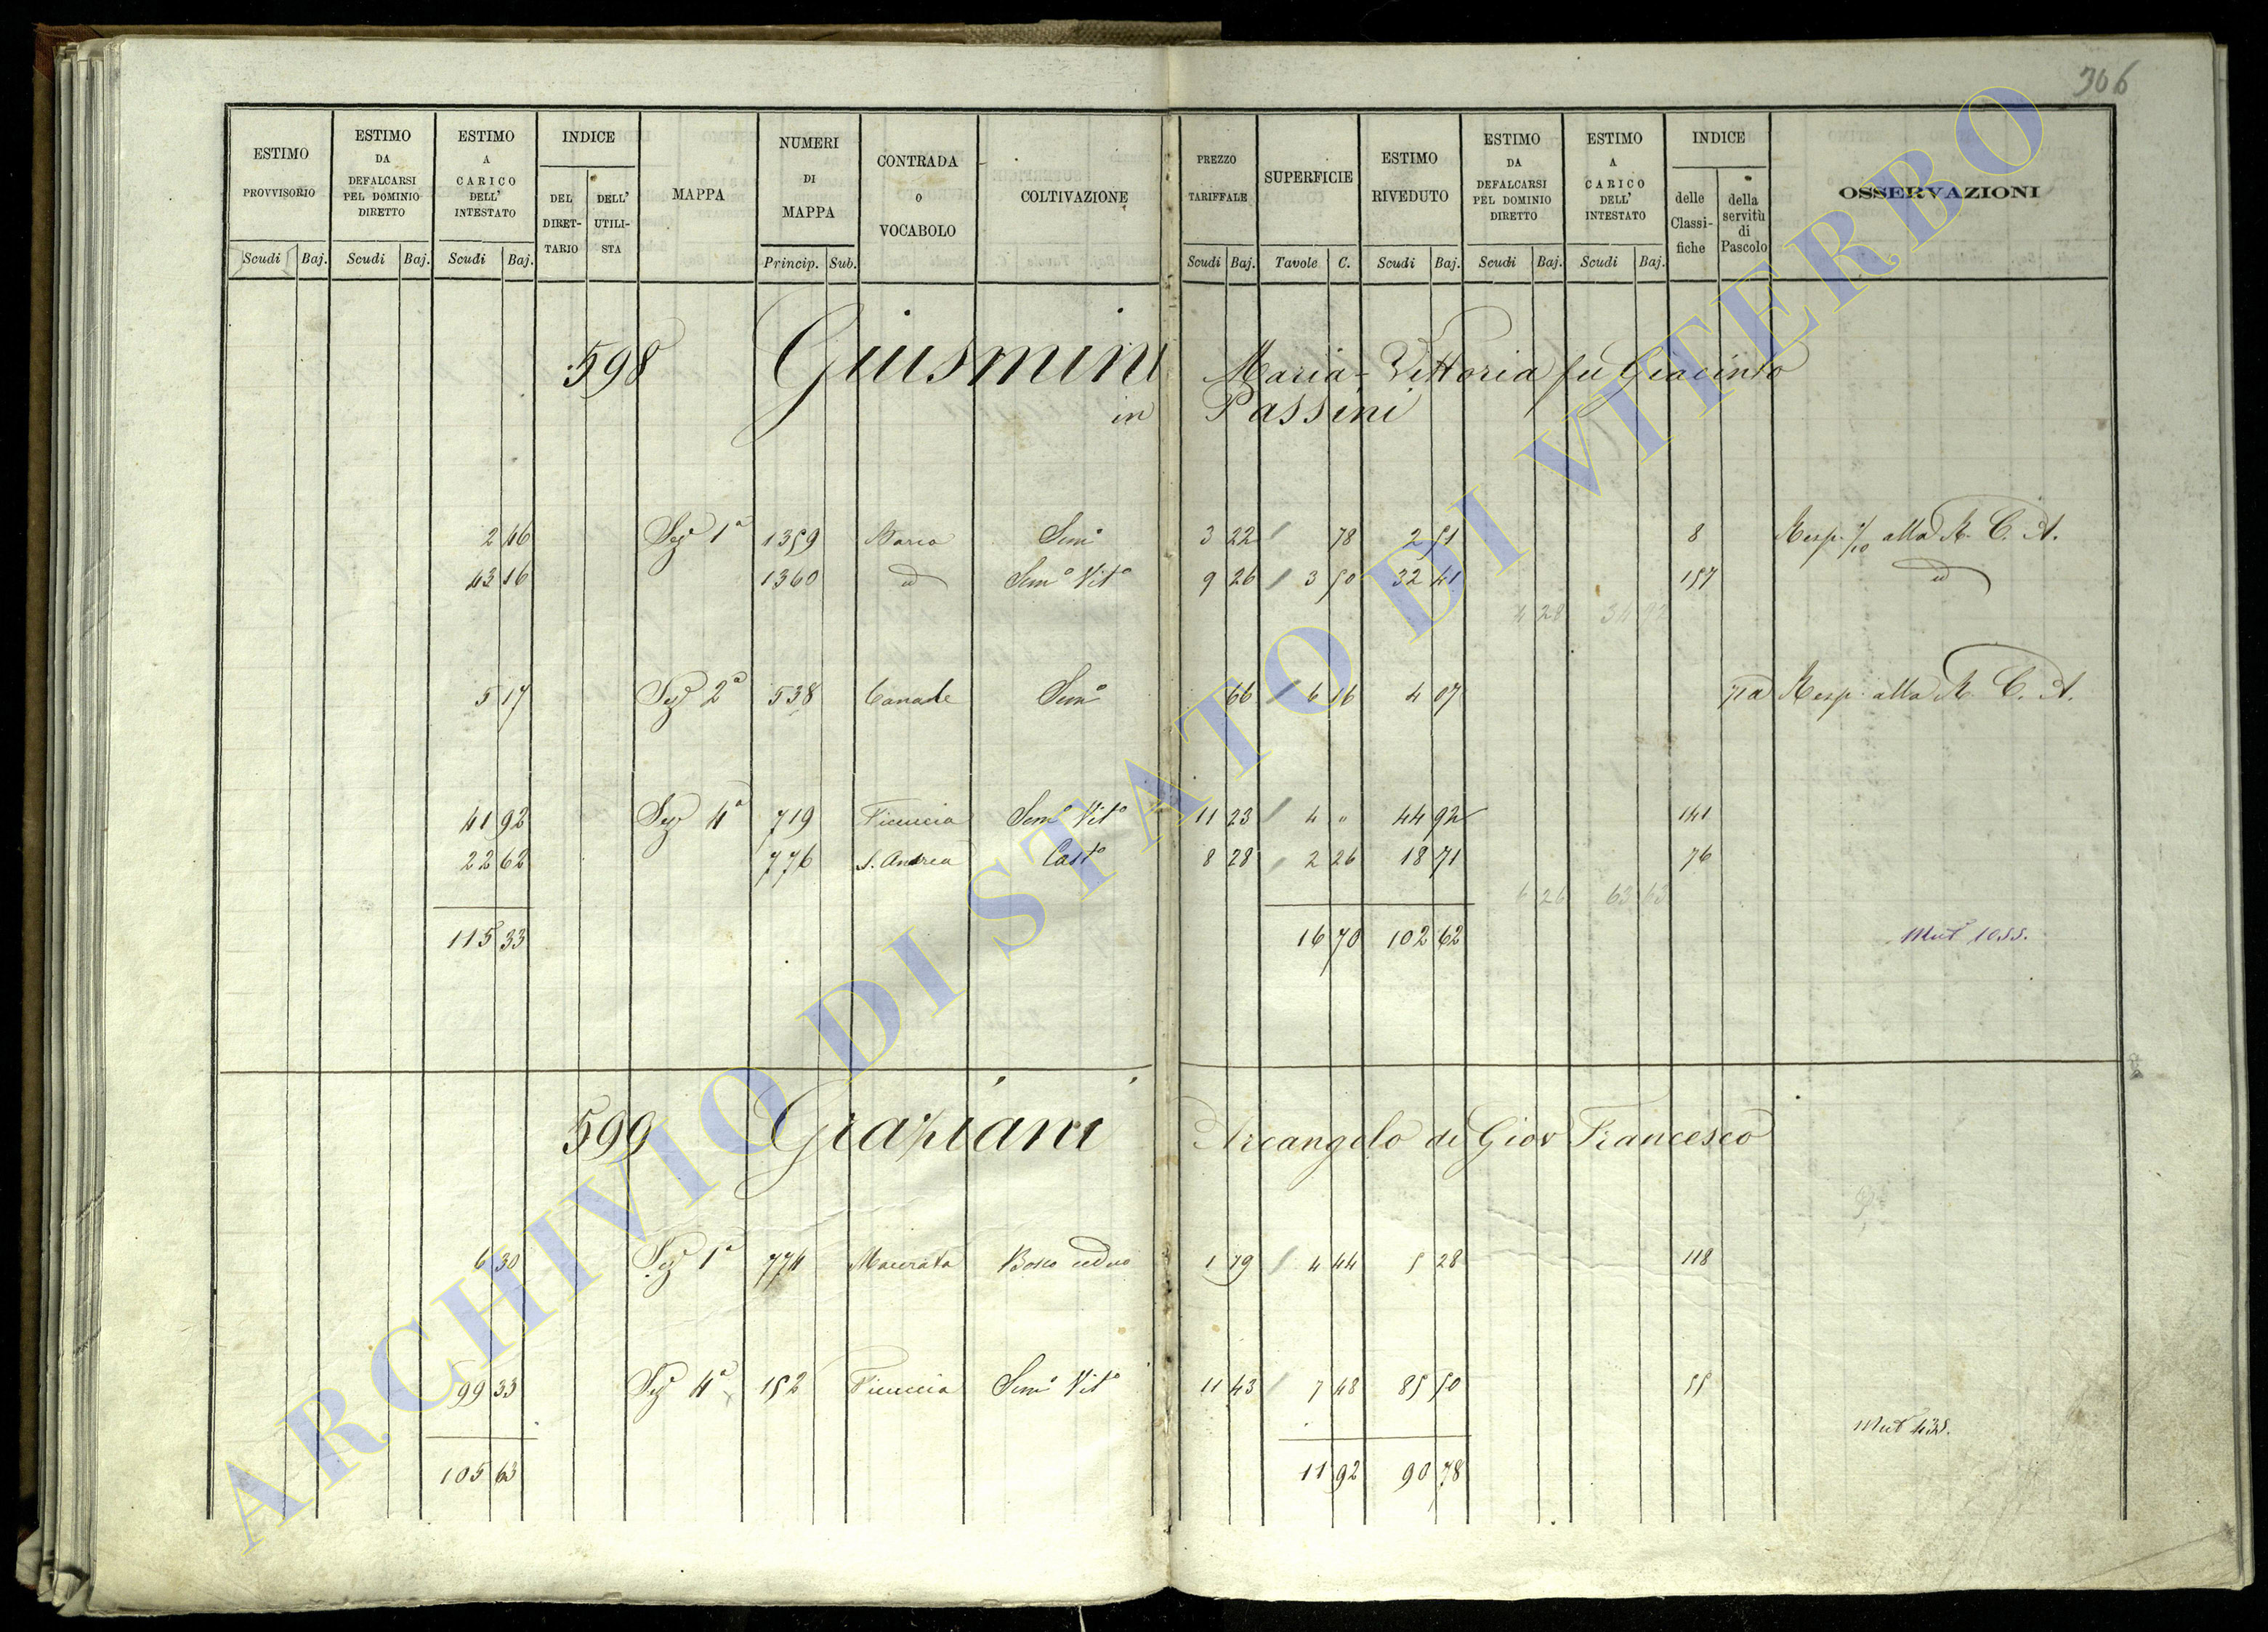 306
ESTIMO PROVVISORIO
ESTIMO DA DEFALCARSI PEL DOMINIO DIRETTO
ESTIMO A CARICO DELL' INTESTATO
INDICE
DEL DIRET-TARIO
DELL' UTILI-STA
MAPPA
NUMERI DI MAPPA
CONTRADA O VOCABOLO
COLTIVAZIONE
PREZZO TARIFFALE
SUPERFICIE
ESTIMO RIVEDUTO
ESTIMO DA DEFALCARSI PEL DOMINIO DIRETTO
ESTIMO A CARICO DELL' INTESTATO
INDICE
delle Classi-fiche
della servitù di Pascolo
OSSERVAZIONI
Scudi Baj. Scudi Baj. Scudi Baj. Princip. Sub. Scudi Baj. Tavole C. Scudi Baj. Scudi Baj. Scudi Baj.
598 Giusmini Maria-Vittoria fu Giacinto
in Passini
2 46 Sez 1a 1359 Sem° 3 22 78 2 51 8 Resp. alla R. C. A.
43 16 1360 id Sem° Vit° 9 26 3 50 32 41 157 id
4 28
5 17 Sez 2a 538 Canale Sem° 66 6 16 4 07 71a Resp: alla R. C. A.
41 92 Sez 4a 719 Ficuccia Sem° Vit° 11 23 4 " 44 92 141
22 62 776 S. Andrea Cast° 8 28 2 26 18 71 76
6 26 63 63
115 33 16 70 102 62 Mut 1055.
599 Graziani Arcangelo di Giov Francesco
6 30 Sez 1a 774 Macerata Bosco ceduo 1 19 4 44 5 28 118
99 33 Sez 4a 152 Ficuccia Sem° Vit° 11 43 7 48 85 50 55
Mut 435.
105 63 11 92 90 78
ARCHIVIO DI STATO DI VITERBO